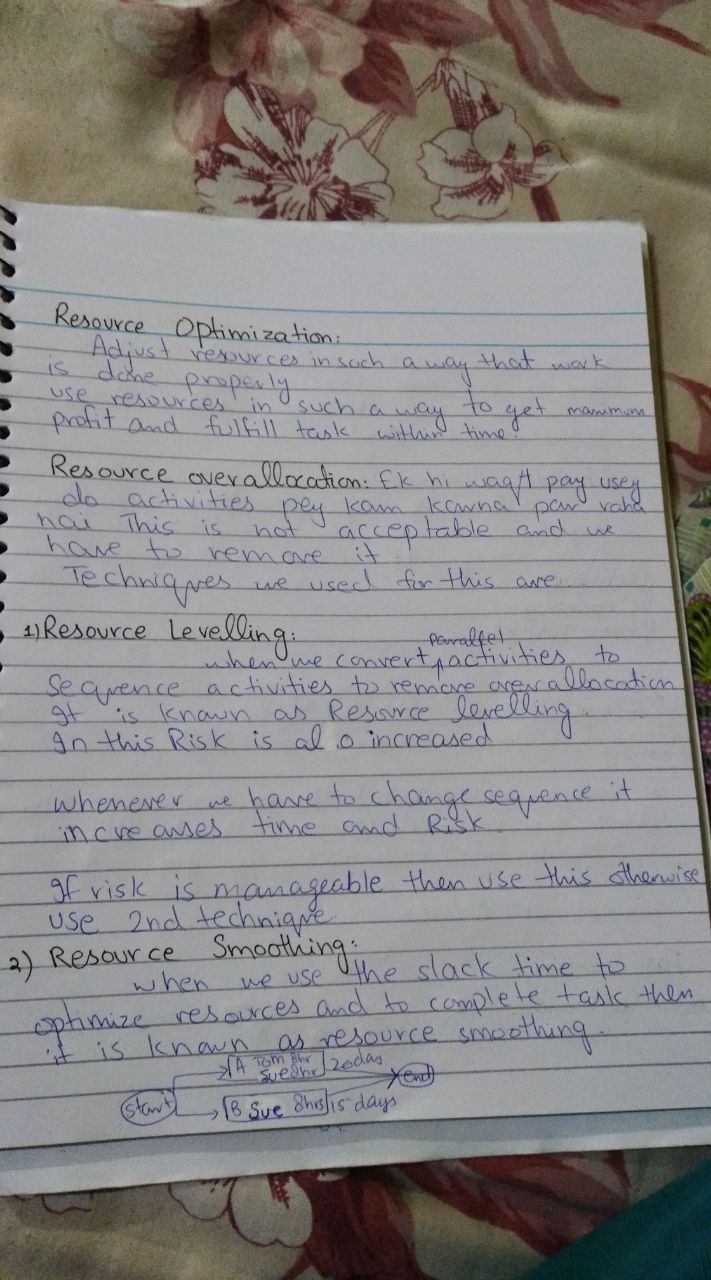 Resource Optimization:
Adjust resources in such a way that work
is done properly
use resources in such a way to get manimum
profit and fulfill task within time.
Resource overallocation: Ek hi waqt pay usey
do activities pey kam karna par raha
hai This is not acceptable and we
have to remove it.
Techniques we used for this are
1) Resource Levelling:
parallel
when we convert ^ activities to
Sequence activities to remove overallocation
It is known as Resource levelling.
In this Risk is al o increased
Whenever we have to change sequence it
increases time and Risk.
If risk is manageable then use this otherwise
use 2nd technique.
2) Resource Smoothing:
when we use the slack time to
optimize resources and to complete task then
it is known as resource smoothing.
A Tom 8hr 20day
Sue 8hr
end
start
B Sue 8hrs 15 days